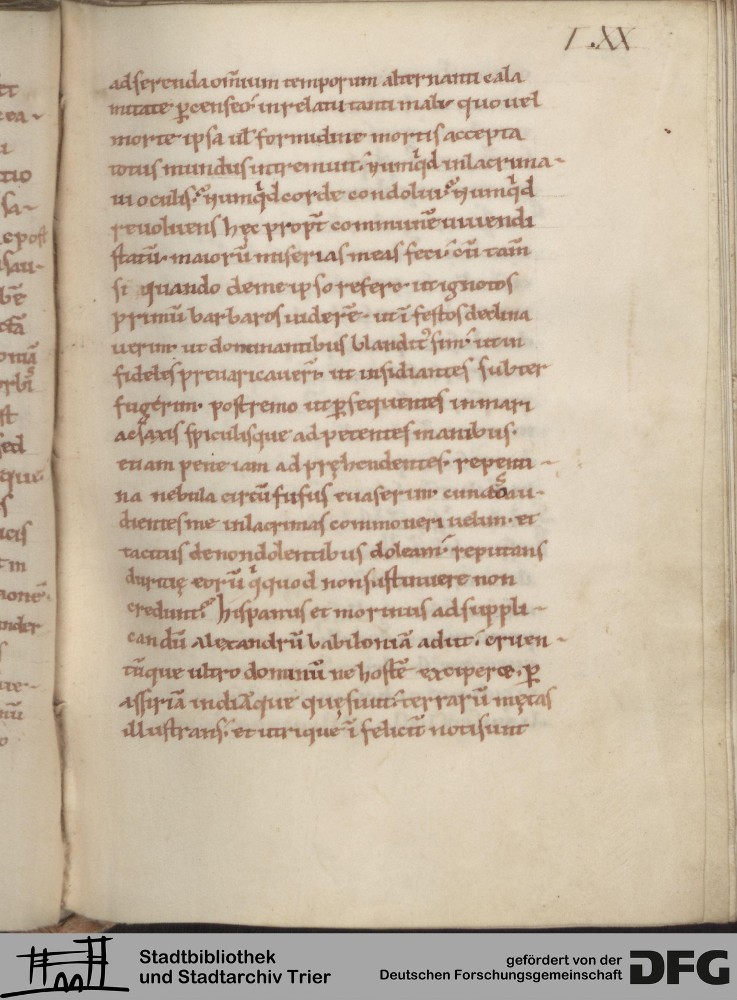 LXX
adserenda om̅ium temporum alternanti cala
mitate p̱censeo. in relatu tanti mali quo uel
morte ipsa ul̅ formidine mortis accepta
totus mundus intremuit. Numq̇d inlacrima-
ui oculis? Numq̇d corde condolui? Numq̇d
reuoluens hęc propt̅ commune̅ uiuendi
statu̅. maioru̅ miserias meas feci. cu̅ tam̅
si quando de me ipso refero. ut ignotos
primu̅ barbaros uidere̅. ut i̅festos declina
uerim. ut dominantibus blandit᾿ sim. ut in
fideles preuaricauerī. ut insidiantes subter
fugerim. postremo ut p̱sequentes in mari
ac saxis spiculisque adpetentes manibus.
etiam pene iam adpręhendentes. repenti-
na nebula circu̅fusus euaserim. cunctos au-
dientes me in lacrimas commoueri uelim. et
tacitus de non dolentibus doleam. reputans
duritię eoru̅ q̇ quod non sustinuere non
credunt. hispanus et morinus ad suppli-
candu̅ Alexandru̅ babilonia̅ adiit. cruen-
tu̅que ultro dominu̅ ne hoste̅ exciperet. p̱
assiria̅ india̅que quęsiuit. terraru̅ mętas
illustrans. et utrique i̅feliciṫ noti sunt
Stadtbibliothek
und Stadtarchiv Trier
gefördert von der
Deutschen Forschungsgemeinschaft
DFG